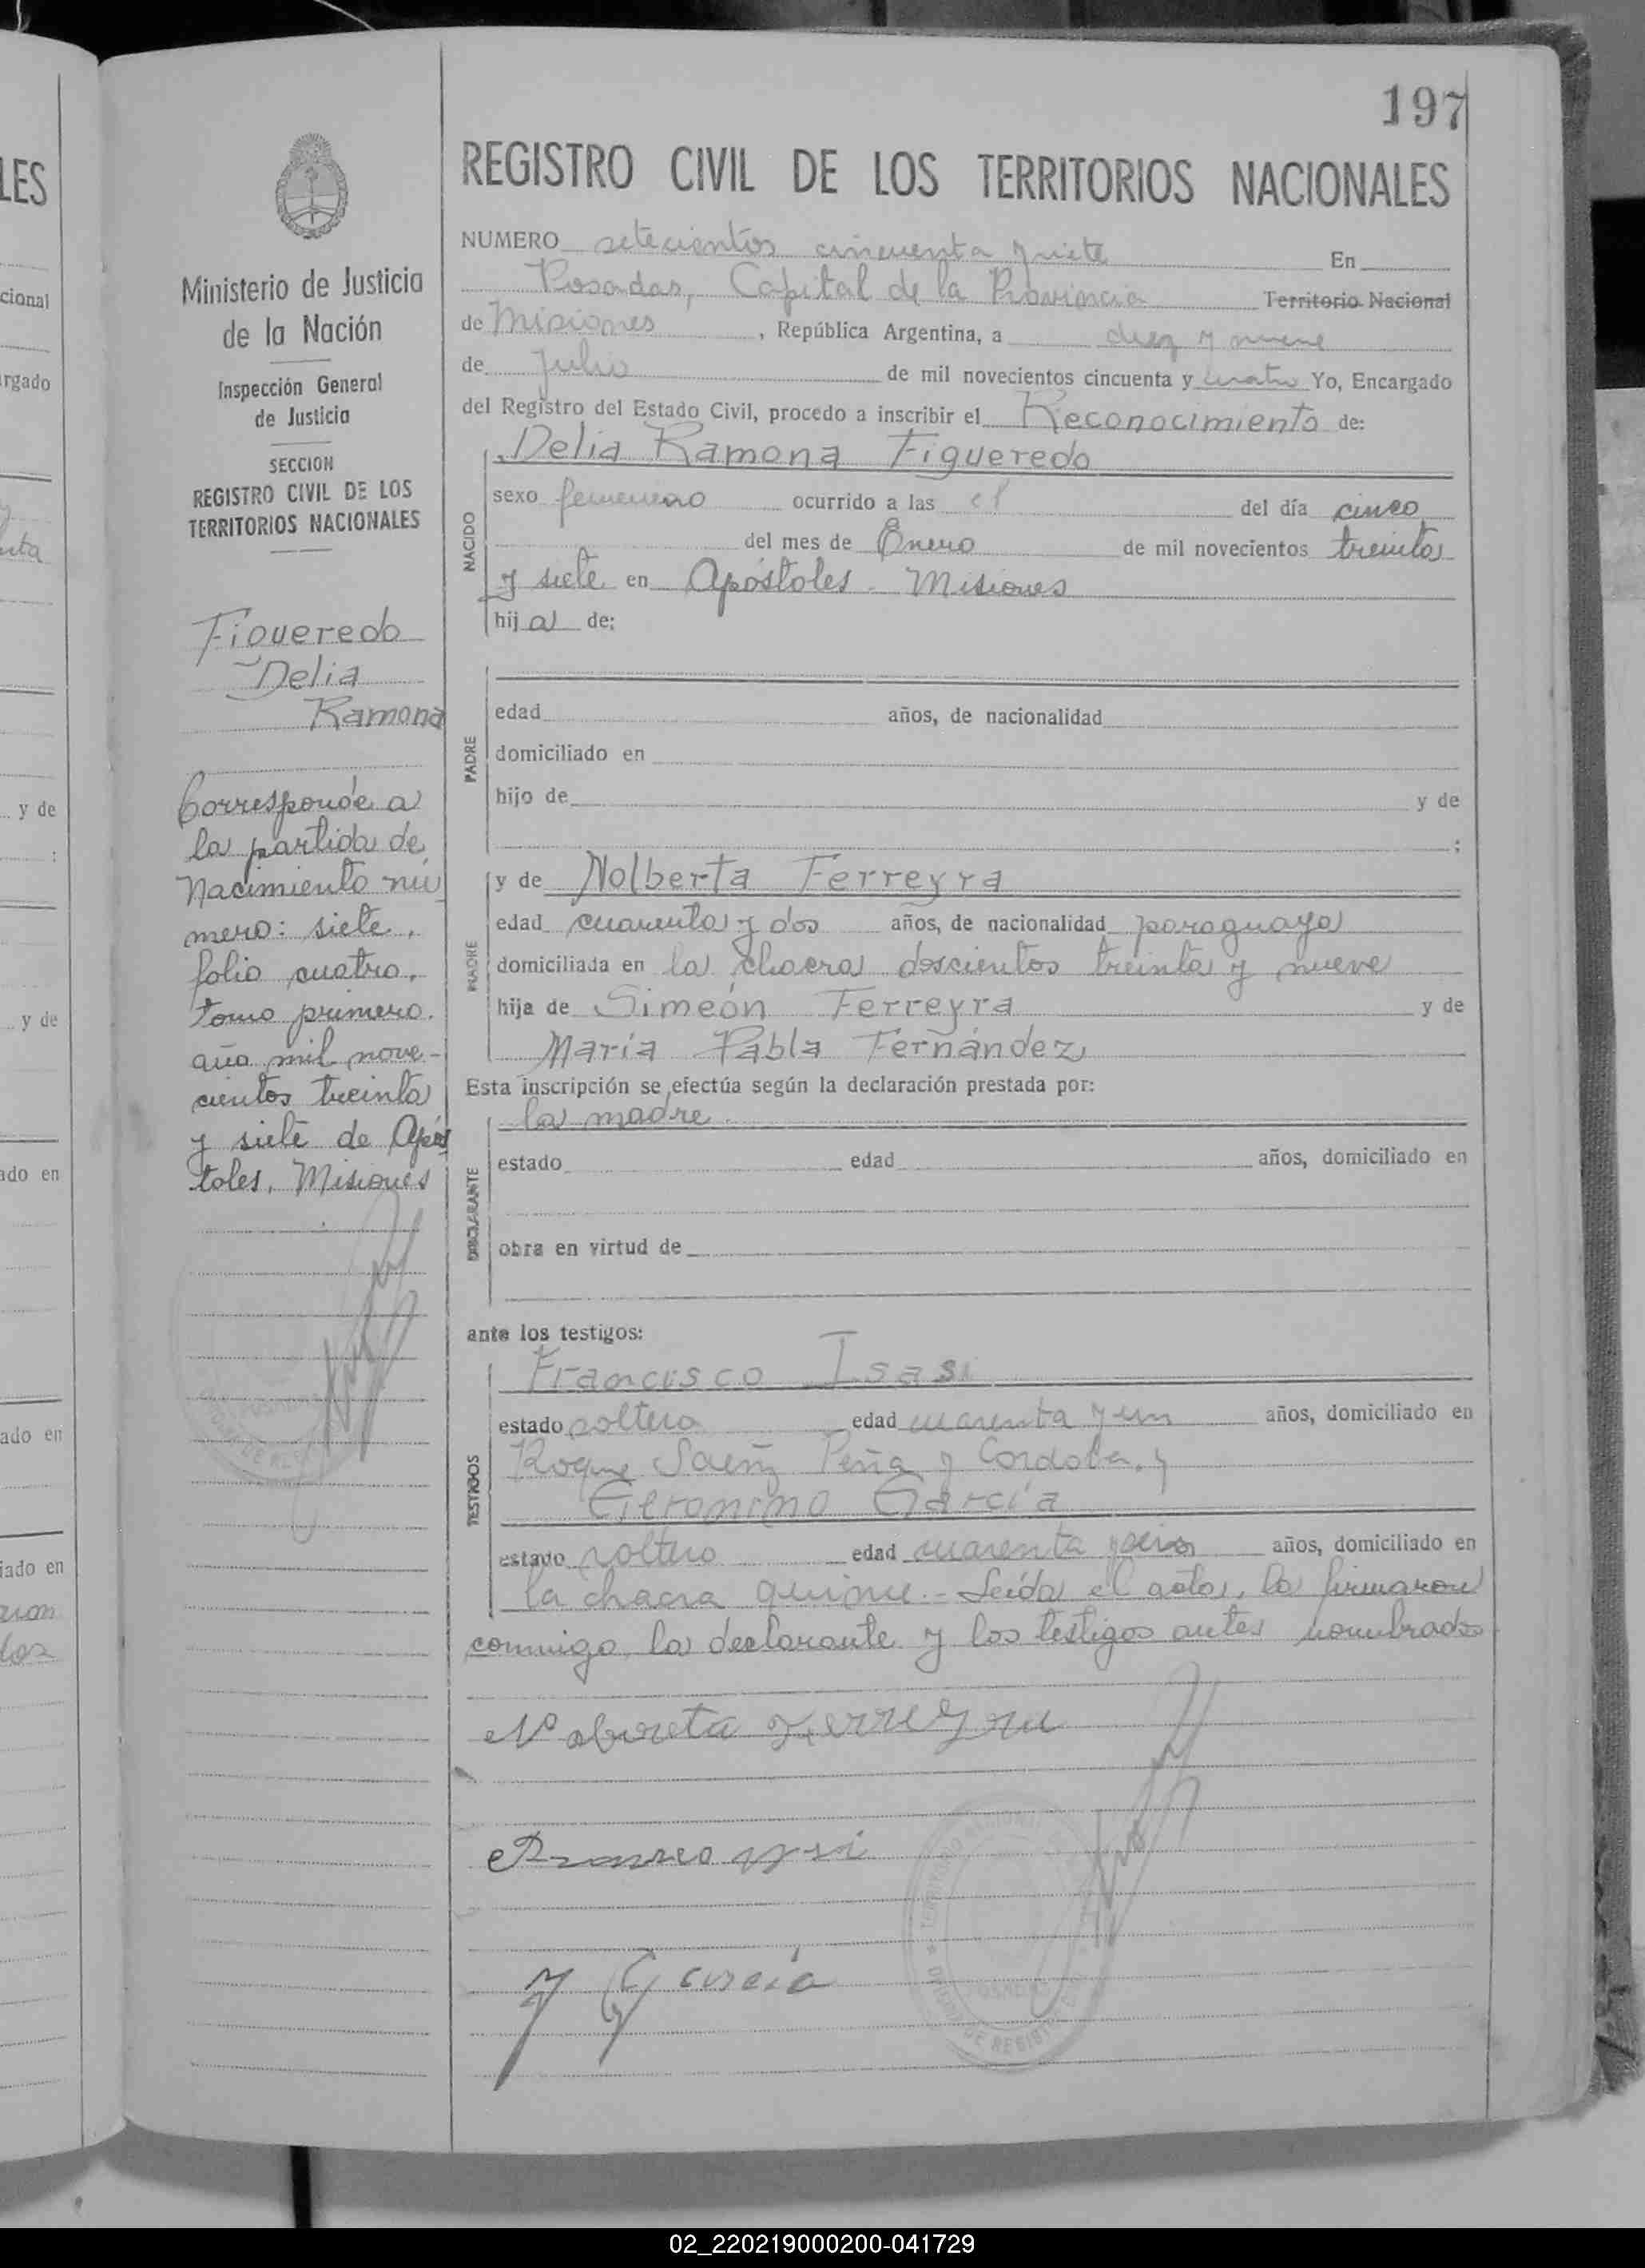 197
REGISTRO CIVIL DE LOS TERRITORIOS NACIONALES
NUMERO setecientos cincuenta y siete En
Posadas, Capital de la Provincia Territorio Nacional
de Misiones, República Argentina, a diez y nueve
de julio de mil novecientos cincuenta y cuatro Yo, Encargado
del Registro del Estado Civil, procedo a inscribir el Reconocimiento de:
Delia Ramona Figueredo
NACIDO
sexo femenino ocurrido a las el del día cinco
del mes de Enero de mil novecientos treinta
y siete en Apóstoles - Misiones
hija de:
PADRE
edad años, de nacionalidad
domiciliado en
hijo de y de
;
MADRE
y de Nolberta Ferreyra
edad cuarenta y dos años, de nacionalidad paraguaya
domiciliada en la chacra doscientos treinta y nueve
hija de Simeón Ferreyra y de
María Pabla Fernández
Esta inscripción se efectúa según la declaración prestada por:
la madre.
DECLARANTE
estado edad años, domiciliado en
obra en virtud de
ante los testigos:
Francisco Isasi
TESTIGOS
estado soltero edad cuarenta y un años, domiciliado en
Roque Saenz Peña y Cordoba. y
Geronimo García
estado soltero edad cuarenta y seis años, domiciliado en
la chacra quince.- Leída el acta, la firmaron
conmigo la declarante y los testigos antes nombrados
Nolbreta Ferreyra
J G García
Ministerio de Justicia
de la Nación
Inspección General
de Justicia
SECCION
REGISTRO CIVIL DE LOS
TERRITORIOS NACIONALES
Figueredo
Delia
Ramona
Corresponde a
la partida de
Nacimiento nú
mero: siete,
folio cuatro,
tomo primero.
año mil nove-
cientos treinta
y siete de Após
toles, Misiones
LES
cional
rgado
y de
y de
ado en
ado en
iado en
02_220219000200-041729